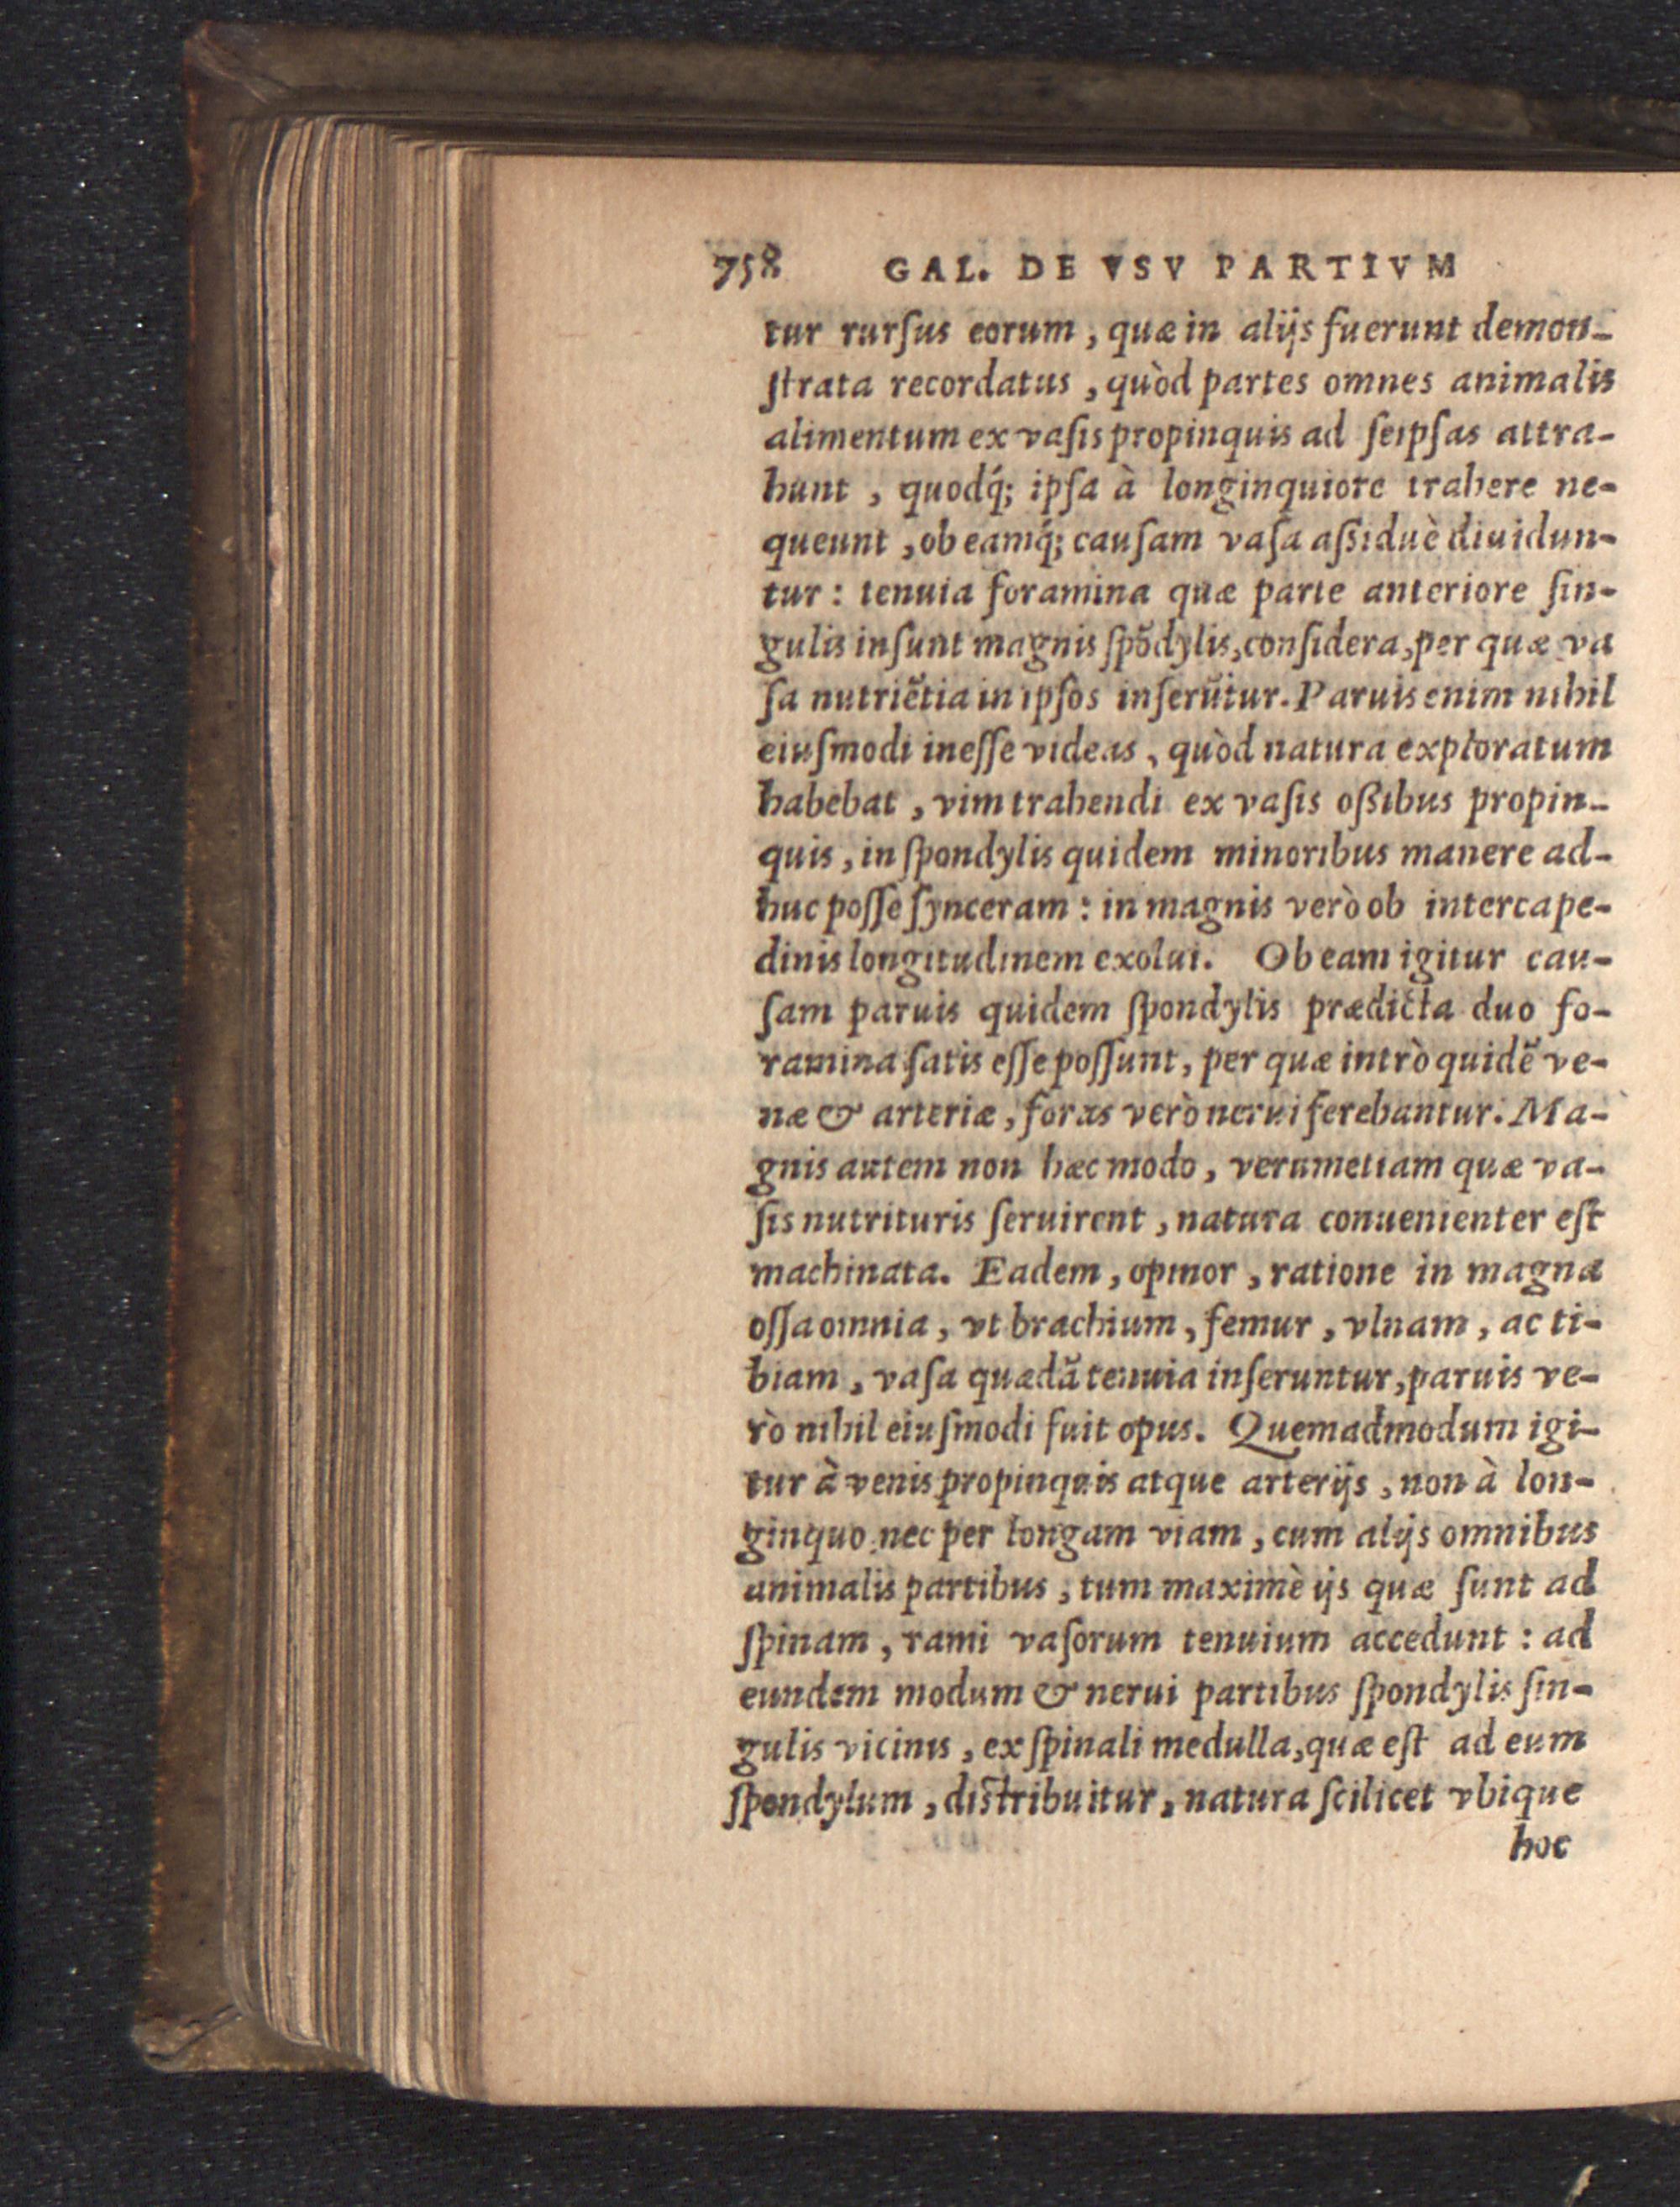 758 GAL. DE VSV PARTIVM
tur rurſus eorum, quæ in alijs fuerunt demon-
ſtrata recordatus, quòd partes omnes animalis
alimentum ex vaſis propinquis ad ſeipſas attra-
hunt, quodq́; ipſa à longinquiore trahere ne-
queunt, ob eamq́; cauſam vaſa aßiduè diuidun-
tur: tenuia foramina quæ parte anteriore ſin-
gulis inſunt magnis ſpõdylis, conſidera, per quæ va
ſa nutriẽtia in ipſos inſerũtur. Paruis enim nihil
eiuſmodi ineſſe videas, quòd natura exploratum
habebat, vim trahendi ex vaſis oßibus propin-
quis, in ſpondylis quidem minoribus manere ad-
huc poſſe ſynceram: in magnis verò ob intercape-
dinis longitudinem exolui. Ob eam igitur cau-
ſam paruis quidem ſpondylis prædicta duo fo-
ramina ſatis eſſe poſſunt, per quæ intrò quidẽ ve-
næ & arteriæ, foras verò nerui ferebantur. Ma-
gnis autem non hæc modo, verumetiam quæ va-
ſis nutrituris ſeruirent, natura conuenienter eſt
machinata. Eadem, opinor, ratione in magna
oſſa omnia, vt brachium, femur, vlnam, ac ti-
biam, vaſa quædã tenuia inſeruntur, paruis ve-
rò nihil eiuſmodi fuit opus. Quemadmodum igi-
tur à venis propinquis atque arterijs, non à lon-
ginquo nec per longam viam, cum alijs omnibus
animalis partibus, tum maximè ijs quæ ſunt ad
ſpinam, rami vaſorum tenuium accedunt: ad
eundem modum & nerui partibus ſpondylis ſin-
gulis vicinis, ex ſpinali medulla, quæ eſt ad eum
ſpondylum, diſtribuitur, natura ſcilicet vbique
hoc